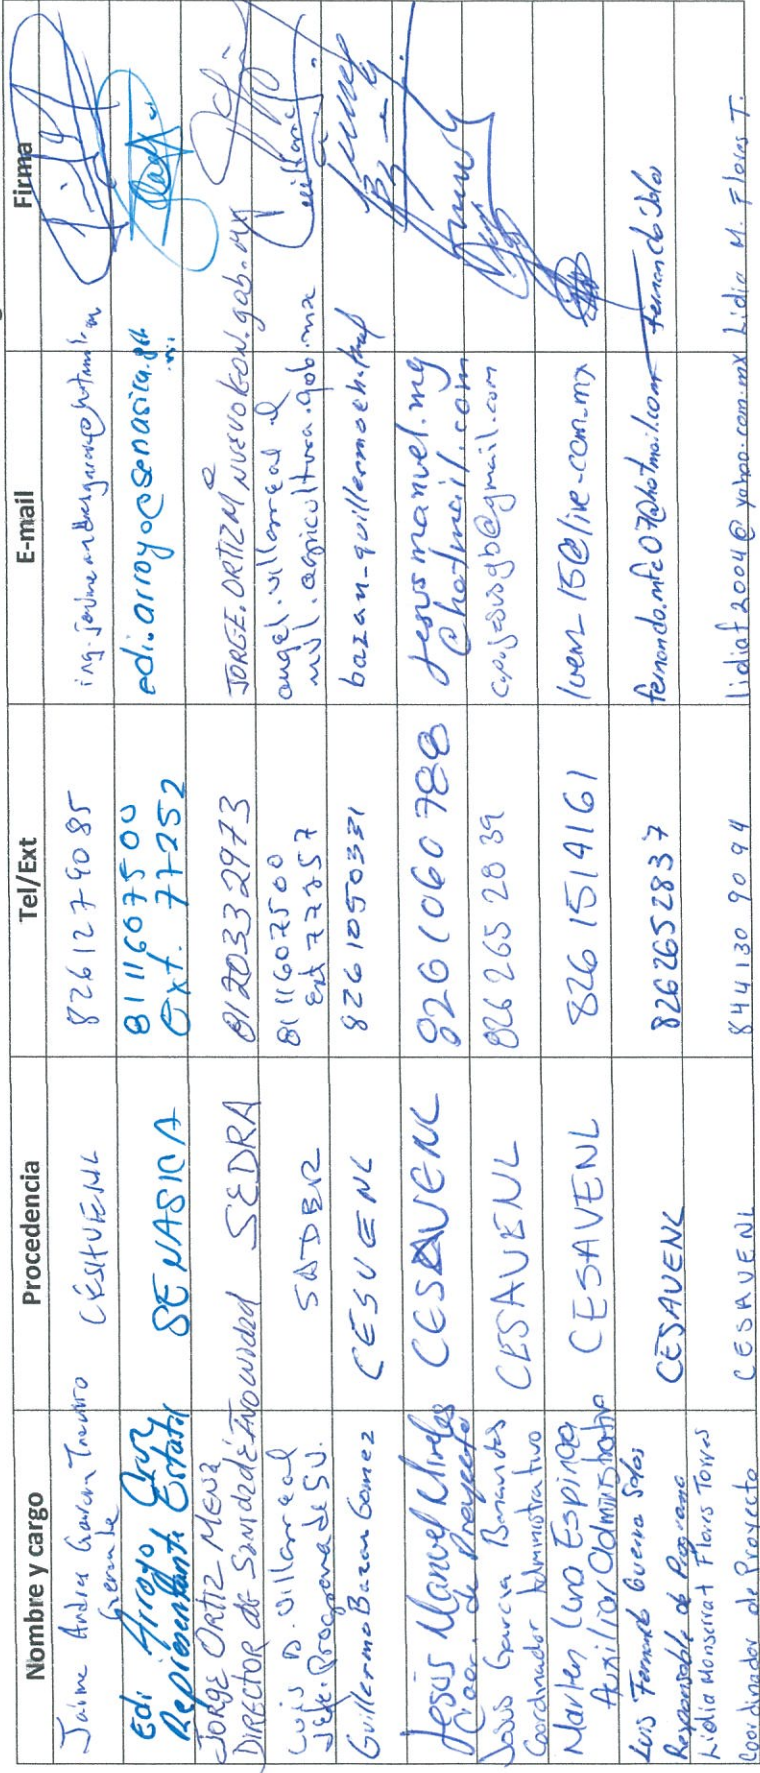 Nombre y cargo Procedencia Tel/Ext E-mail Firma
Jaime Andres Garcia Treviño
Gerente
CESAVENL 8261279085
Edi Arroyo Cruz
Representante Estatal
SENASICA 8111607500
Ext. 77252
edi.arroyo@senasica.gob
.mx
JORGE ORTIZ MENA
DIRECTOR de Sanidad é Inocuidad SEDRA 8120332973 JORGE.ORTIZM@NUEVOLEON.gob.mx
Luis A. Villarreal
Jefe Programa de S.V.
SADER 8111607500
Ext 77257
angel.villarreal@
nvl.agricultura.gob.mx
Guillermo Bazan Gomez CESVENL 8261050331
Jesús Manuel Mireles
Coor. de Proyecto
CESAVENL 8261060788 jesusmanuel.mg
@hotmail.com
Jesus Garcia Benavides
Coordinador Administrativo
CESAVENL 8262652839 cpajesusgb@gmail.com
Marlen Luna Espinoza
Auxiliar Administrativa
CESAVENL 8261514161
Luis Fernando Guerra Solos
Responsable de Programa
CESAVENL 8262652837 fernando.mfc07@hotmail.com
Lidia Monserrat Flores Torres
Coordinador de Proyecto
CESAVENL 844130 9094 lidiaf2004@yahoo.com.mx Lidia M. Flores T.